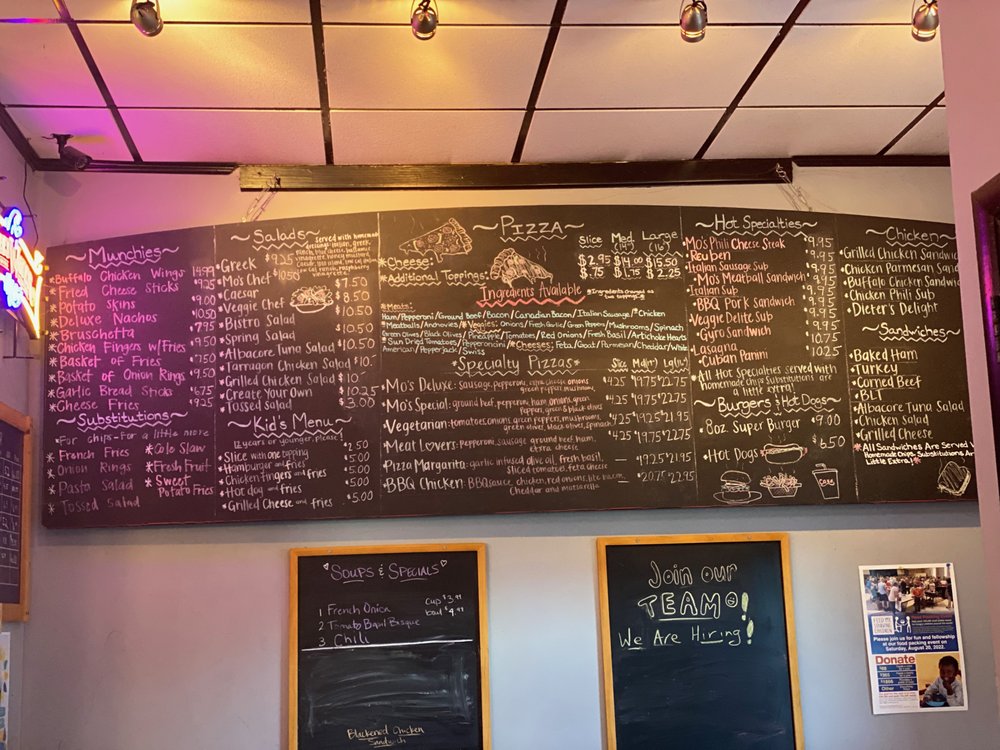 Munchies
*Buffalo Chicken Wings 14.99
*Fried Cheese Sticks 9.25
*Potato Skins 9.00
*Deluxe Nachos 10.50
*Bruschetta 7.95
*Chicken Fingers w/Fries 9.50
*Basket of Fries 7.50
*Basket of Onion Rings 9.50
*Garlic Bread Sticks 6.75
*Cheese Fries 9.25
Substitutions
*For chips-For a little more
*French Fries *Cole Slaw
*Onion Rings *Fresh Fruit
*Pasta Salad *Sweet Potato Fries
*Tossed Salad
Salads
served with homemade
*Greek $9.25
*Mo's Chef $10.50
*Caesar $7.50
*Veggie Chef $8.50
*Bistro Salad $10.50
*Spring Salad
*Albacore Tuna Salad $10.50
*Tarragon Chicken Salad
*Grilled Chicken Salad
*Create Your Own $10.25
*Tossed Salad $3.00
Kid's Menu
12 years or younger, please!
*Slice with one topping $2.50
*Hamburger and fries $5.00
*Chicken fingers and fries $5.00
*Hot dog and fries $5.00
*Grilled Cheese and fries $5.00
Pizza
Slice Med (14") Large (16")
*Cheese: $2.95 $14.00 $15.50
*Additional Toppings: $.75 $1.75 $2.25
Ingredients Available
*Ingredients charged as
two toppings
*Meats:
Ham/Pepperoni/Ground Beef/Bacon/Canadian Bacon/Italian Sausage/*Chicken
*Meatballs/Anchovies *Veggies: Onions/Fresh Garlic/Green Peppers/Mushrooms/Spinach
Green Olives/Black Olives/Pineapple/Tomatoes/Red Onions/Fresh Basil/Artichoke Hearts
*Sun Dried Tomatoes/Pepperoncini *Cheeses: Feta/Goat/Parmesan/Cheddar/White
American/Pepperjack/Swiss
*Specialty Pizzas*
Slice Med(14") Lg(16")
*Mo's Deluxe: sausage, pepperoni, extra cheese, onions 4.25 $19.75 $22.75
green peppers, mushrooms
*Mo's Special: ground beef, pepperoni, ham, onions, green 4.25 $19.75 $22.75
peppers, green & black olives
*Vegetarian: tomatoes, onions, green peppers, mushrooms, 4.25 $19.25 $21.95
green olives, black olives, spinach
*Meat Lovers: pepperoni, sausage, ground beef, ham, 4.25 $19.75 $22.75
extra cheese
*Pizza Margarita: garlic infused olive oil, fresh basil, $19.25 $21.95
sliced tomatoes, feta cheese
*BBQ Chicken: BBQ sauce, chicken, red onions, $20.75 $22.95
Cheddar and mozzarella
Hot Specialties
*Mo's Phili Cheese Steak 9.95
*Reuben 9.95
*Italian Sausage Sub 9.95
*Mo's Meatball Sandwich 9.95
*Italian Sub 9.95
*BBQ Pork Sandwich 9.95
*Veggie Delite Sub 9.95
*Gyro Sandwich 9.95
*Lasagna 10.75
*Cuban Panini 10.25
*All Hot Specialties served with
homemade chips. Substitutions are
a little extra!
Burgers & Hot Dogs
*8oz Super Burger $9.00
*Hot Dogs $6.50
Chicken
*Grilled Chicken Sandwich
*Chicken Parmesan Sand
*Buffalo Chicken Sandwich
*Chicken Phili Sub
*Dieter's Delight
Sandwiches
*Baked Ham
*Turkey
*Corned Beef
*BLT
*Albacore Tuna Salad
*Chicken Salad
*Grilled Cheese
*All Sandwiches Are Served
Homemade Chips, Substitutions Are
Little Extra!
Soups & Specials
Cup $3.99
1 French Onion bowl $4.99
2 Tomato Basil Bisque
3 Chili
Blackened Chicken
Sandwich
Join our
TEAM!
We Are Hiring!
Please join us for fun and fellowship
at our food packing event on
Saturday, August 20, 2022.
Donate
Other